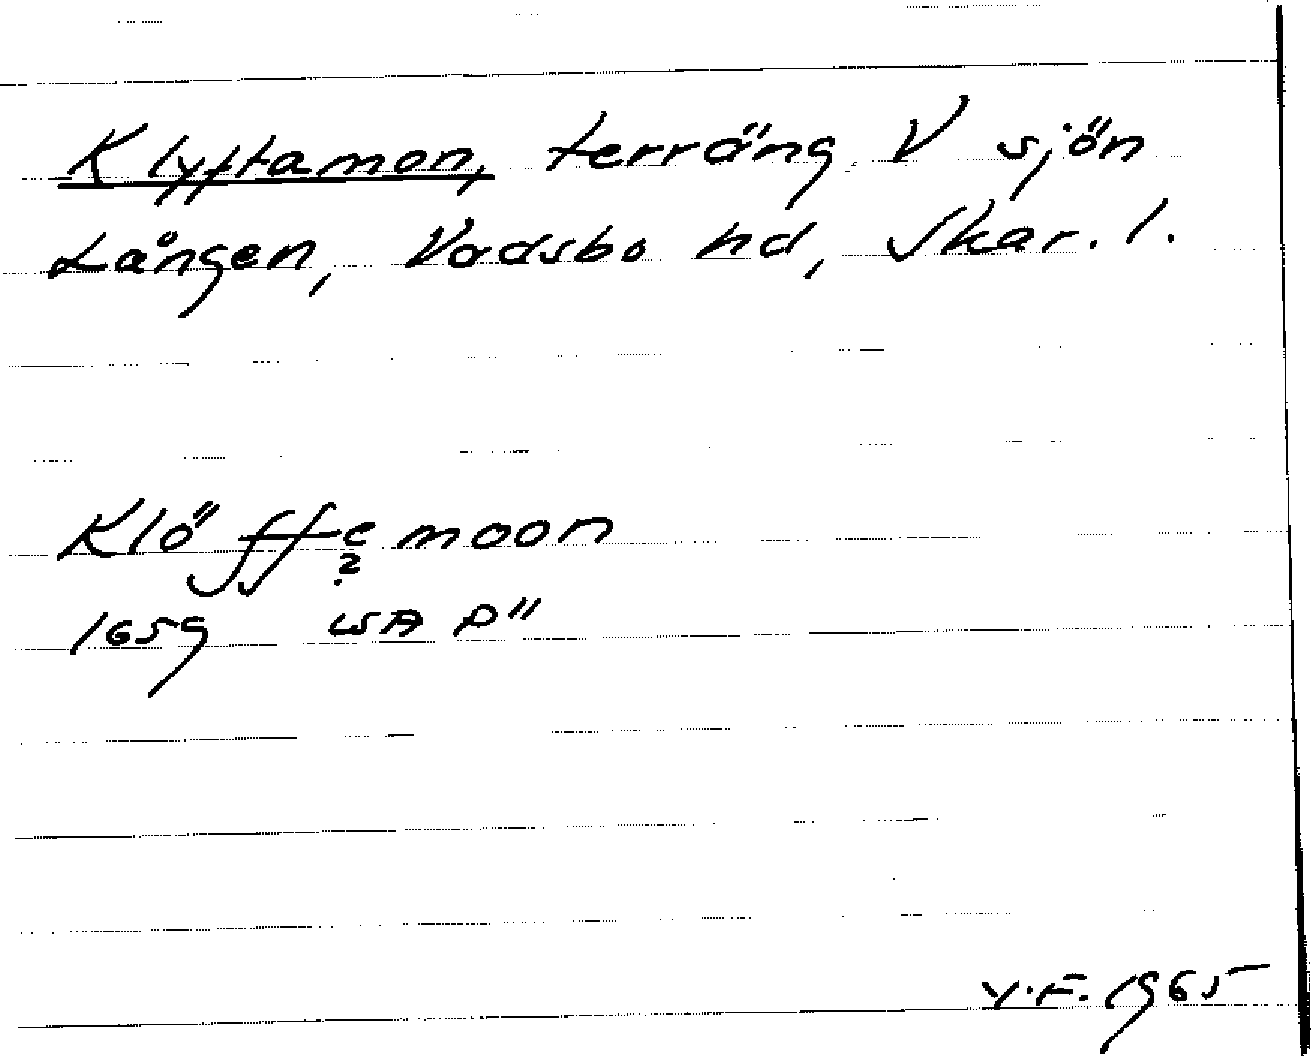 Klyftamon, terräng V sjön
Lången, Vadsbo hd, Skar. l.
Klöffe moon
?
1659 LSA P"
Y.F. 1965